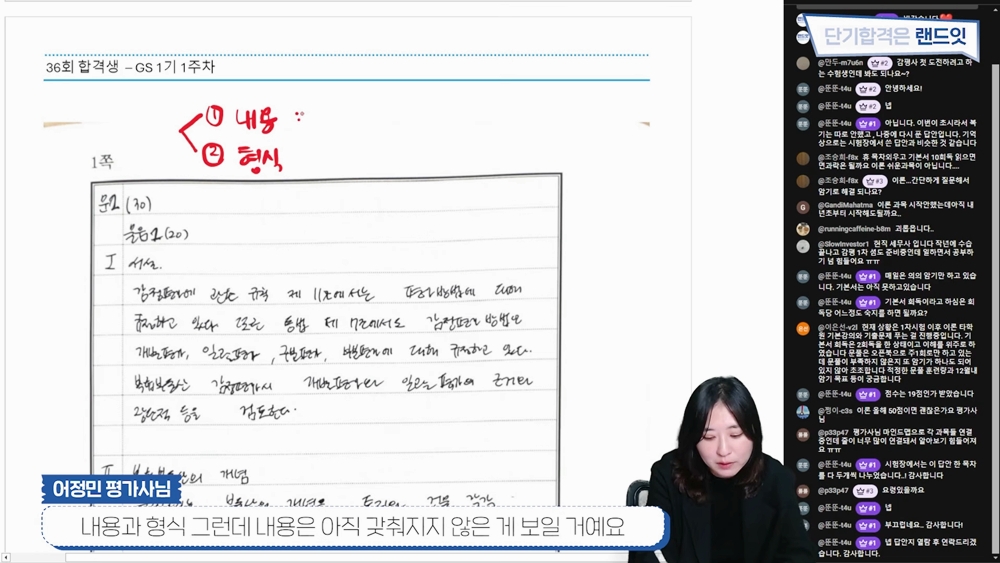 36회 합격생 – GS 1기 1주차
① 내용
② 형식
1쪽
문2 (30)
물음1 (20)
Ⅰ 서설.
감정평가에 관한 규칙 제 11조에서는 평가방법에 대해
규정하고 있다. 또한 동법 제 7조에서도 감정평가 방법으
개별평가, 일괄평가, 구분평가, 부분평가에 대해 규정하고 있다.
복합부동산 감정평가시 개별평가와 일괄평가의 근거와
장단점 등을 검토한다.
Ⅱ 복합부동산의 개념
어정민 평가사님
내용과 형식 그런데 내용은 아직 갖춰지지 않은 게 보일 거예요
단기합격은 랜드잇
@만두-m7u6n #2 감평사 첫 도전하려고 하
는 수험생인데 봐도 되나요~?
@뚠뚠-t4u #2 안녕하세요!
@뚠뚠-t4u #2 넵
@뚠뚠-t4u #1 아닙니다. 이번이 초시라서 복
기는 따로 안했고 , 나중에 다시 푼 답안입니다. 기억
상으로는 시험장에서 쓴 답안과 비슷한 것 같습니다
@조승희-f8x 휴 목자외우고 기본서 10회독 읽으면
면과락은 될까요 이론 쉬운과목이 아닙니다....
@조승희-f8x #3 이론...간단하게 질문해서
암기로 해결 되나요?
@GandiMahatma 이론 과목 시작안했는데아직 내
년초부터 시작해도될까요..
@runningcaffeine-b8m 괴롭읍니다..
@SlowInvestor1 현직 세무사 입니다 작년에 수습
끝나고 감평 1자 셤도 준비중인데 일하면서 공부하
기 넘 힘들어요 ㅠㅠ
@뚠뚠-t4u #1 매일은 의의 암기만 하고 있습
니다. 기본서는 아직 못하고있습니다
@뚠뚠-t4u #1 기본서 회독이라고 하심은 회
독당 어느정도 숙지를 하면 될까요?
@이은선-v2l 현재 상황은 1차시험 이후 이론 타학
원 기본강의와 기출문제 푸는 걸 진행중입니다. 기본
서 회독은 2회독을 한 상태이고 이해를 위주로 하
였습니다 문풀은 오픈북으로 주1회로만 하고 있는
데 문풀이 부족하지 않은지 또 암기가 하나도 되어
있지 않아 초조합니다 적정한 문풀 훈련량과 12월내
암기 목표 등이 궁금합니다
@뚠뚠-t4u #1 점수는 19점인가 받았습니다
@정이-c3s 이론 올해 50점이면 괜찮은가요 평가사
님
@p33p47 평가사님 마인드맵으로 각 과목들 연결
중인데 줄이 너무 많이 연결돼서 알아보기 힘들어져
요ㅠㅠ
@뚠뚠-t4u #1 시험장에서는 이 답안 한 목자
를 다 두개씩 나누었습니다..! 감사합니다
@p33p47 #3 요령있을까요
@뚠뚠-t4u #1 넵
@뚠뚠-t4u #1 부끄럽네요.. 감사합니다!
@뚠뚠-t4u #1 넵 답안지 열람 후 연락드리겠
습니다. 감사합니다.